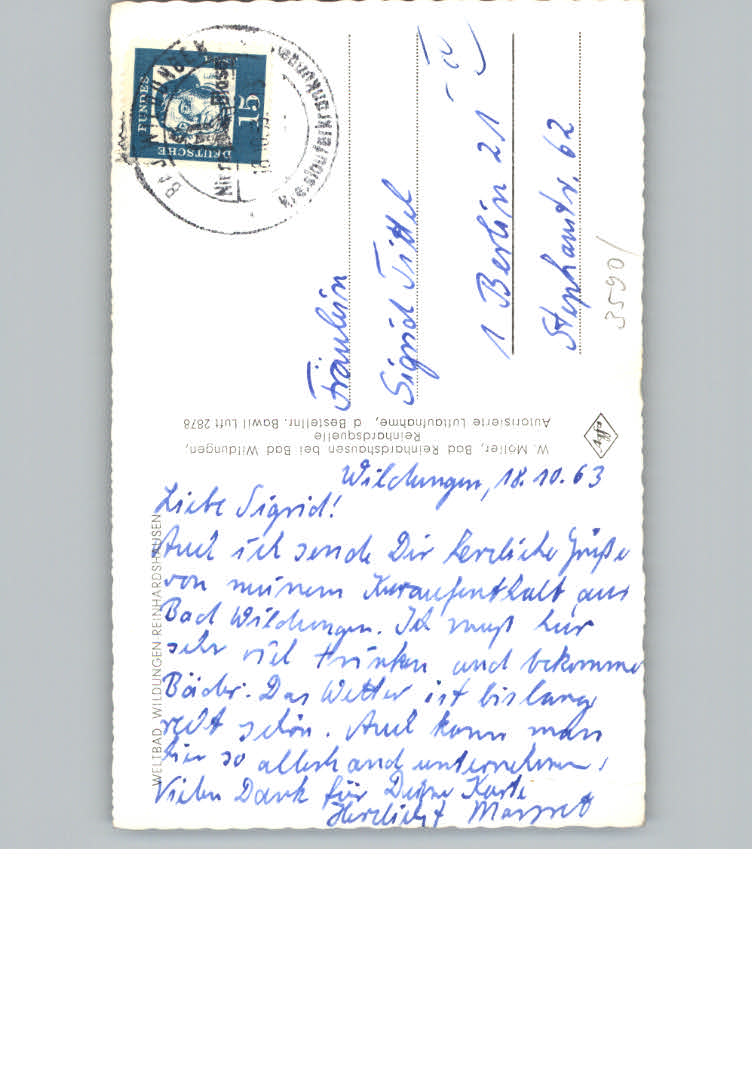 Wildungen, 18.10.63
Liebe Sigrid!
Auch ich sende Dir herzliche Grüße
von meinem Kuraufenthalt aus
Bad Wildungen. Ich muß hier
sehr viel trinken und bekomme
Bäder. Das Wetter ist bislang
recht schön. Auch kann man
hier so allerhand unternehmen.
Vielen Dank für Deine Karte
Herzlichst Margret
Fräulein
Sigrid Tittel
1 Berlin 21
Stephanstr. 62
3590/
WELTBAD WILDUNGEN-REINHARDSHAUSEN
W. Möller, Bad Reinhardshausen bei Bad Wildungen,
Reinhardsquelle
Autorisierte Luftaufnahme, d. Bestellnr. Bawil Luft 2878
DEUTSCHE
BUNDES
15
BAD WILDUNGEN